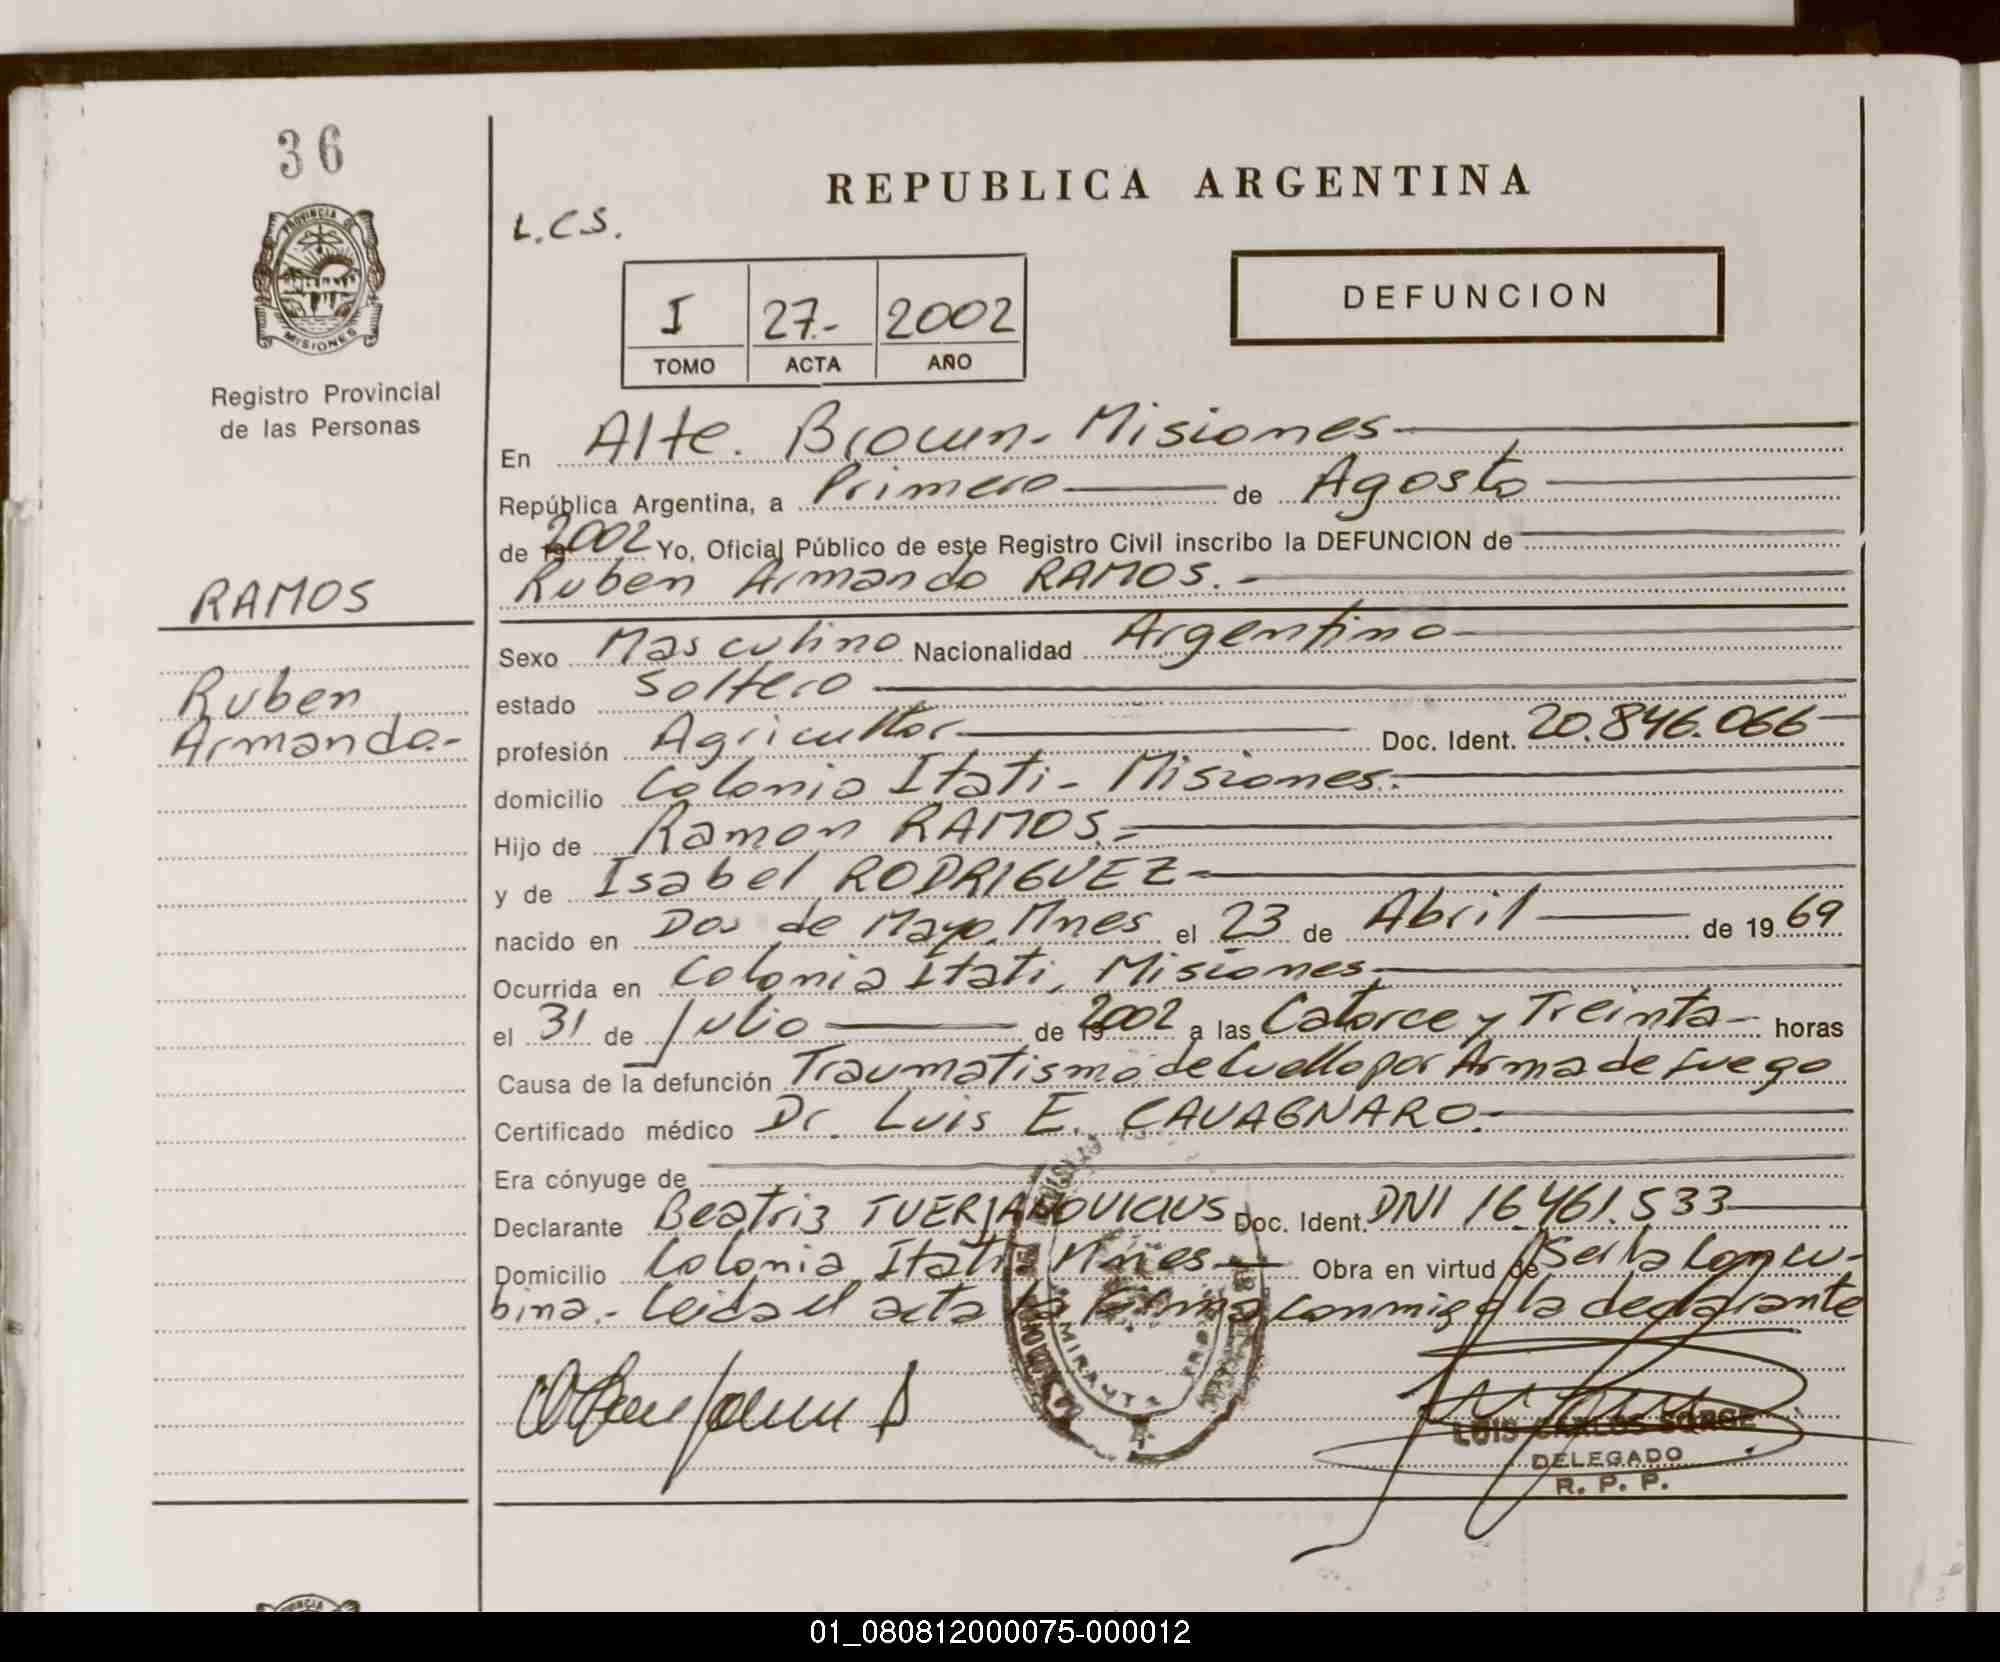 36
PROVINCIA DE
MISIONES
Registro Provincial
de las Personas
RAMOS
Ruben
Armando.-
REPUBLICA ARGENTINA
L.C.S.
I 27.- 2002
TOMO ACTA AÑO
DEFUNCION
En Alte. Brown - Misiones
República Argentina, a Primero de Agosto
de 2002 Yo, Oficial Público de este Registro Civil inscribo la DEFUNCION de
Ruben Armando RAMOS.-
Sexo Masculino Nacionalidad Argentino
estado Soltero
profesión Agricultor Doc. Ident. 20.846.066
domicilio Colonia Itati - Misiones.-
Hijo de Ramon RAMOS.-
y de Isabel RODRIGUEZ
nacido en Dos de Mayo. Mnes el 23 de Abril de 19 69
Ocurrida en Colonia Itati, Misiones.
el 31 de Julio de 2002 a las Catorce y Treinta - horas
Causa de la defunción Traumatismo de Cuello por Arma de fuego
Certificado médico Dr. Luis E. CAVAGNARO.-
Era cónyuge de
Declarante Beatriz TVERJANOVICIUS Doc. Ident. DNI 16.461.533
Domicilio Colonia Itati Mnes Obra en virtud de Ser la concu-
bina.- Leida el acta la firma conmigo la declarante
LUIS CARLOS SORGE
DELEGADO
R. P. P.
01_080812000075-000012